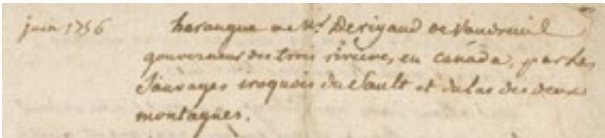 juin 1756 harangue de Mr. De rigaud de Vaudreuil
gouverneur des trois rivieres, en canada, par les
Sauvages iroquois du Sault et du lac des deux
montagnes.